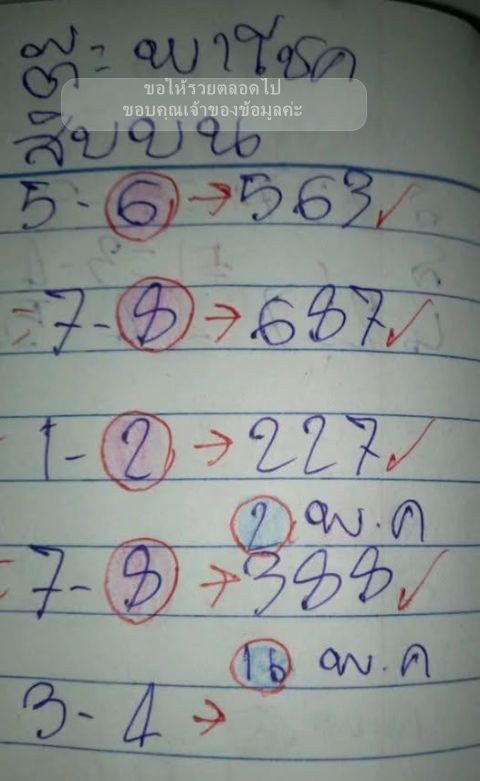 ตี๋: พาโชค
ขอให้รวยตลอดไป
ขอบคุณเจ้าของข้อมูลค่ะ
สิบบน
5-6→563✓
7-8→687✓
1-2→227✓
2 พ.ค
7-8→388✓
16 พ.ค
3-4→